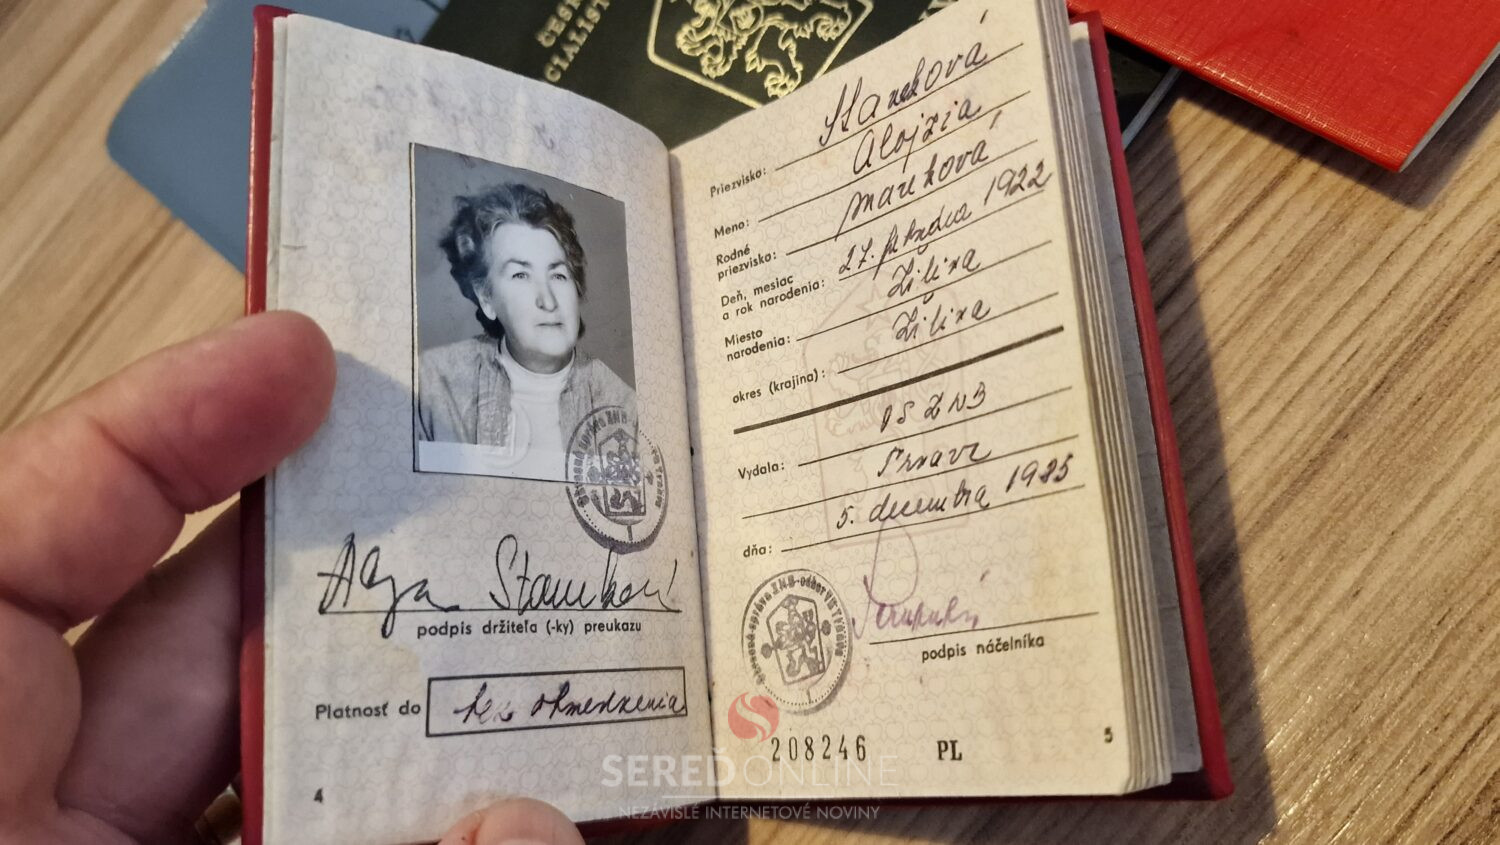 ČESK
CIALIST
podpis držiteľa (-ky) preukazu
Platnosť do bez obmedzenia
4
Priezvisko: Staneková
Meno: Alojzia
Rodné
priezvisko: Mareková
Deň, mesiac
a rok narodenia: 27. 1922
Miesto
narodenia: Žilina
okres (krajina): Žilina
Vydala: OS ZNB
Trnava
dňa: 5. decembra 1985
podpis náčelníka
208246 PL
5
SEREĎONLINE
NEZÁVISLÉ INTERNETOVÉ NOVINY